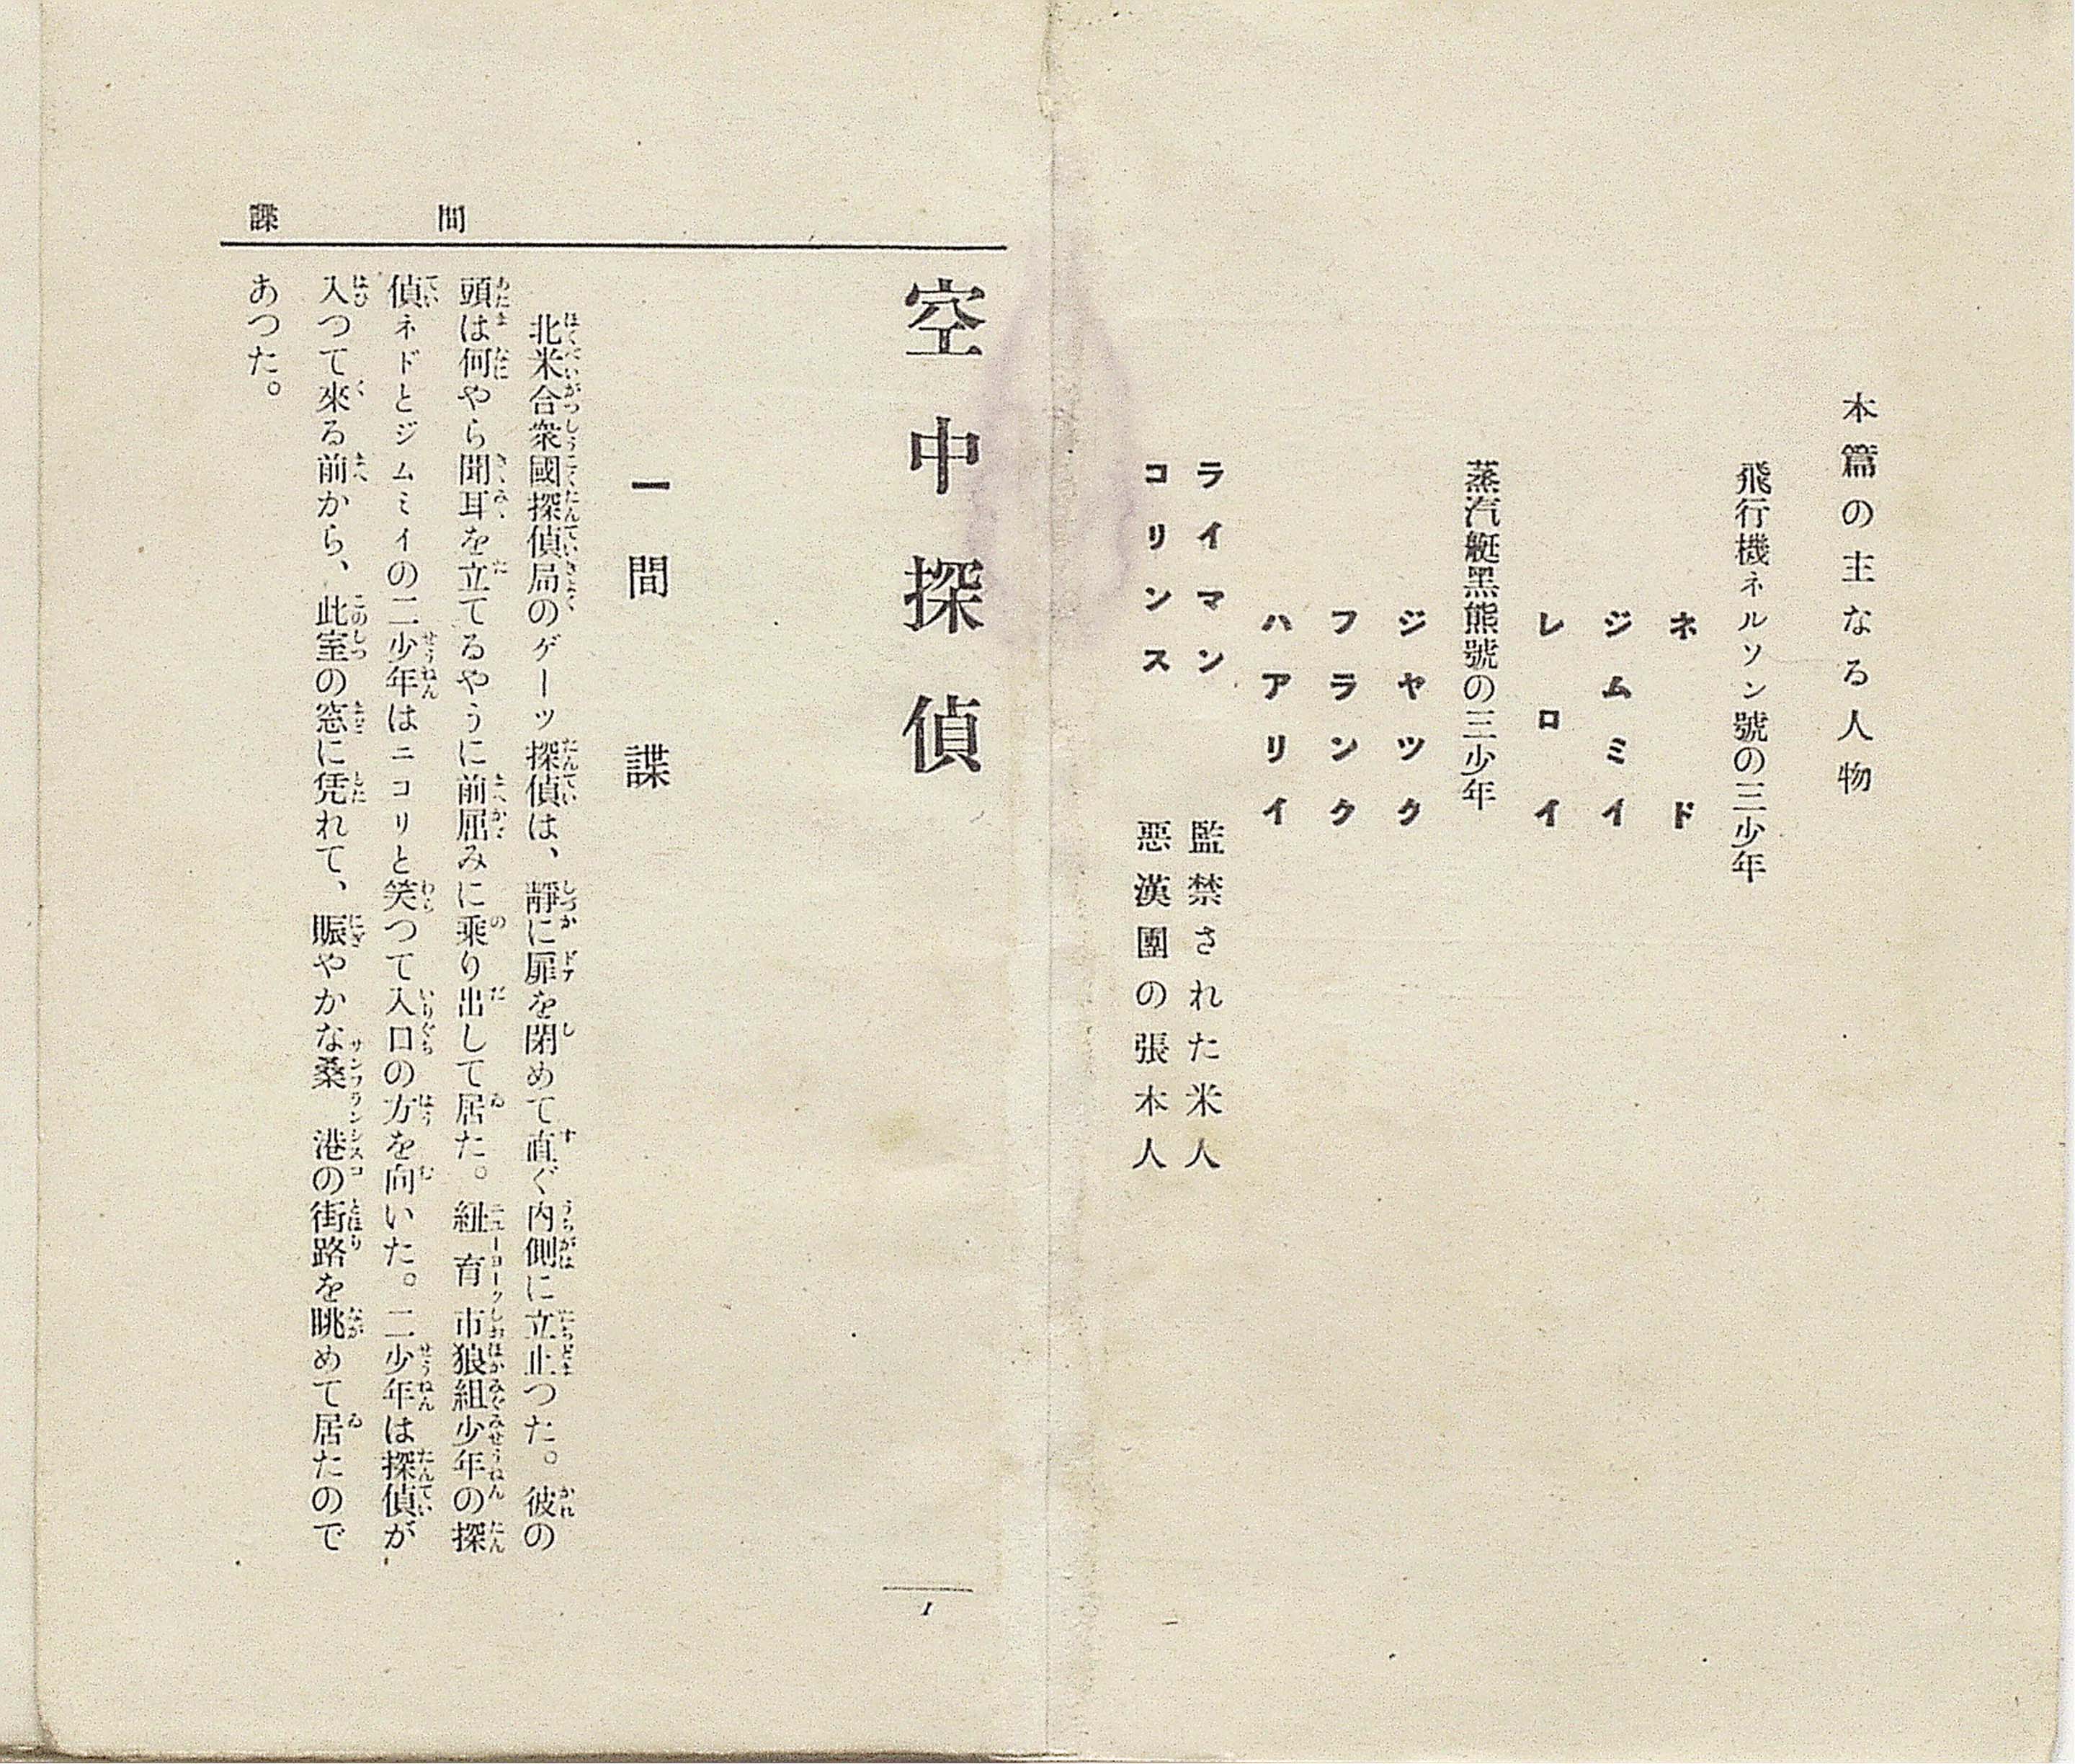 本篇の主なる人物
飛行機ネルソン號の三少年
ネド
ジムミイ
レロイ
蒸汽艇黑熊號の三少年
ジヤツク
フランク
ハアリイ
ライマン　監禁された米人
コリンス　惡漢團の張本人
間諜
空中探偵
一　間諜
北米合衆國探偵局のゲーツ探偵は、靜に扉を閉めて直ぐ内側に立止つた。彼の
頭は何やら聞耳を立てるやうに前屈みに乗り出して居た。紐育市狼組少年の探
偵ネドとジムミイの二少年はニコリと笑つて入口の方を向いた。二少年は探偵が
入つて來る前から、此室の窓に凭れて、賑やかな桑港の街路を眺めて居たので
あつた。
1